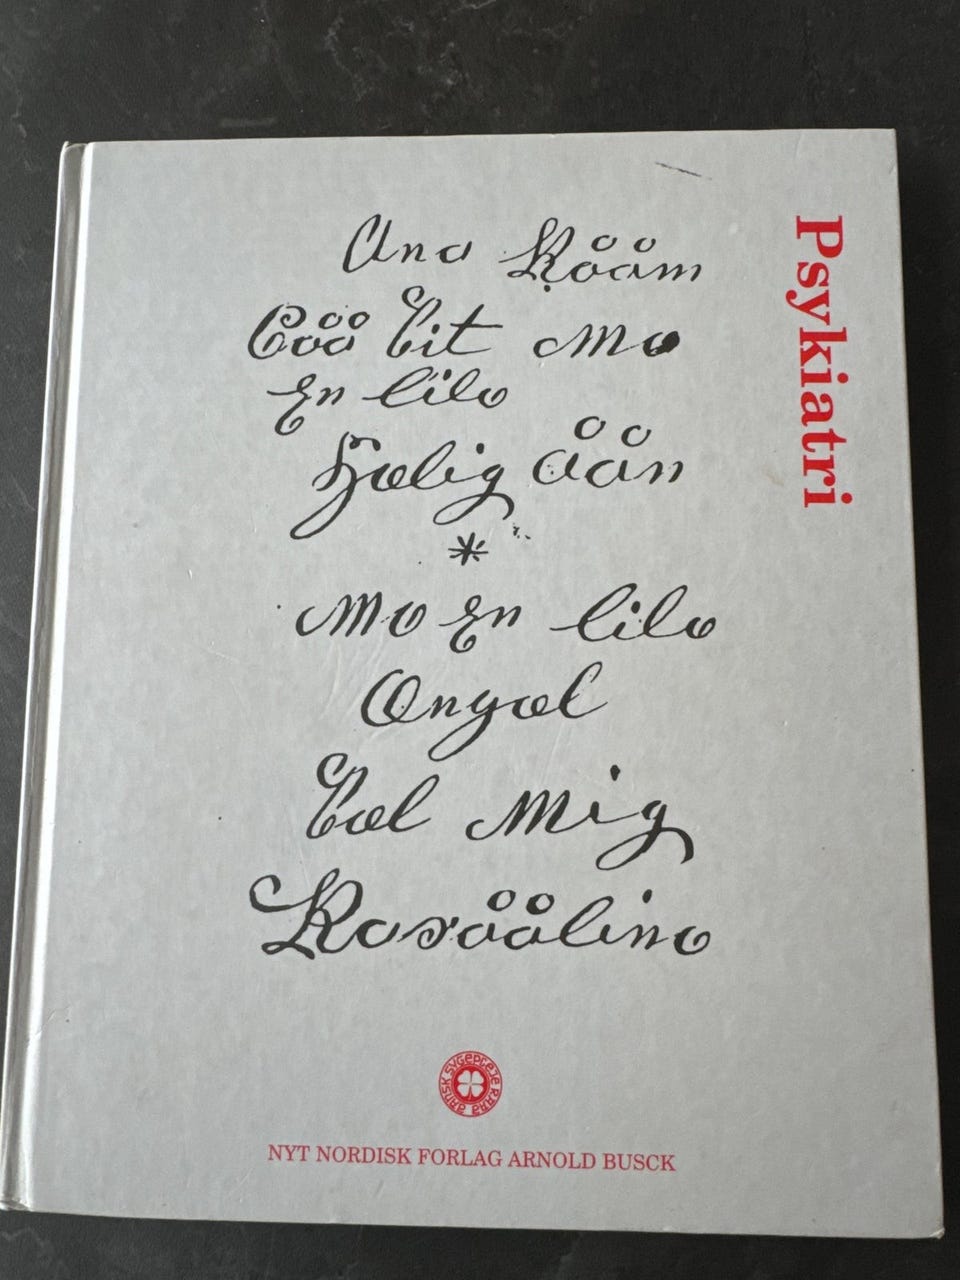 Psykiatri
Ana Rååm
Cåå Tit Ma
En lila
Hælig åån
*
Ma En lila
Ængæl
Tæl Mig
Rosåålina
DANSK SYGEPLEJERÅD
NYT NORDISK FORLAG ARNOLD BUSCK